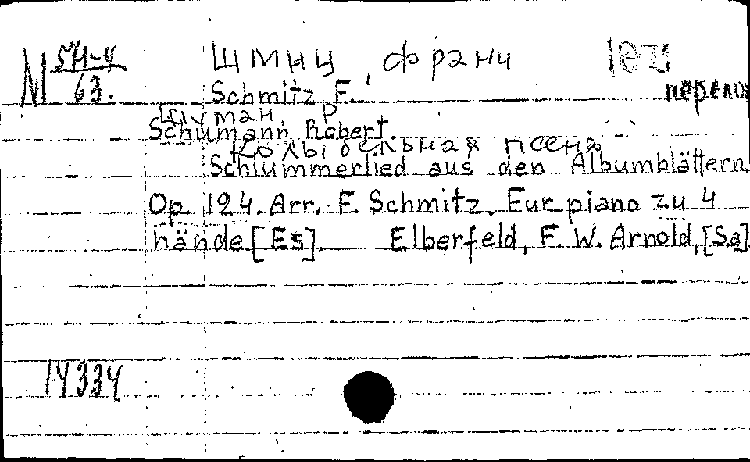 М 5Н-4 Шмиц, Франц
63. Schmitz F. перелож
Шуман, Р
Schumann, Robert.
Колыбельная песня
Schlummerlied aus den Albumblättern
Op. 124. Arr. F. Schmitz. Fur piano zu 4
hände [Es]. Elberfeld, F. W. Arnold, [Sa]
14334